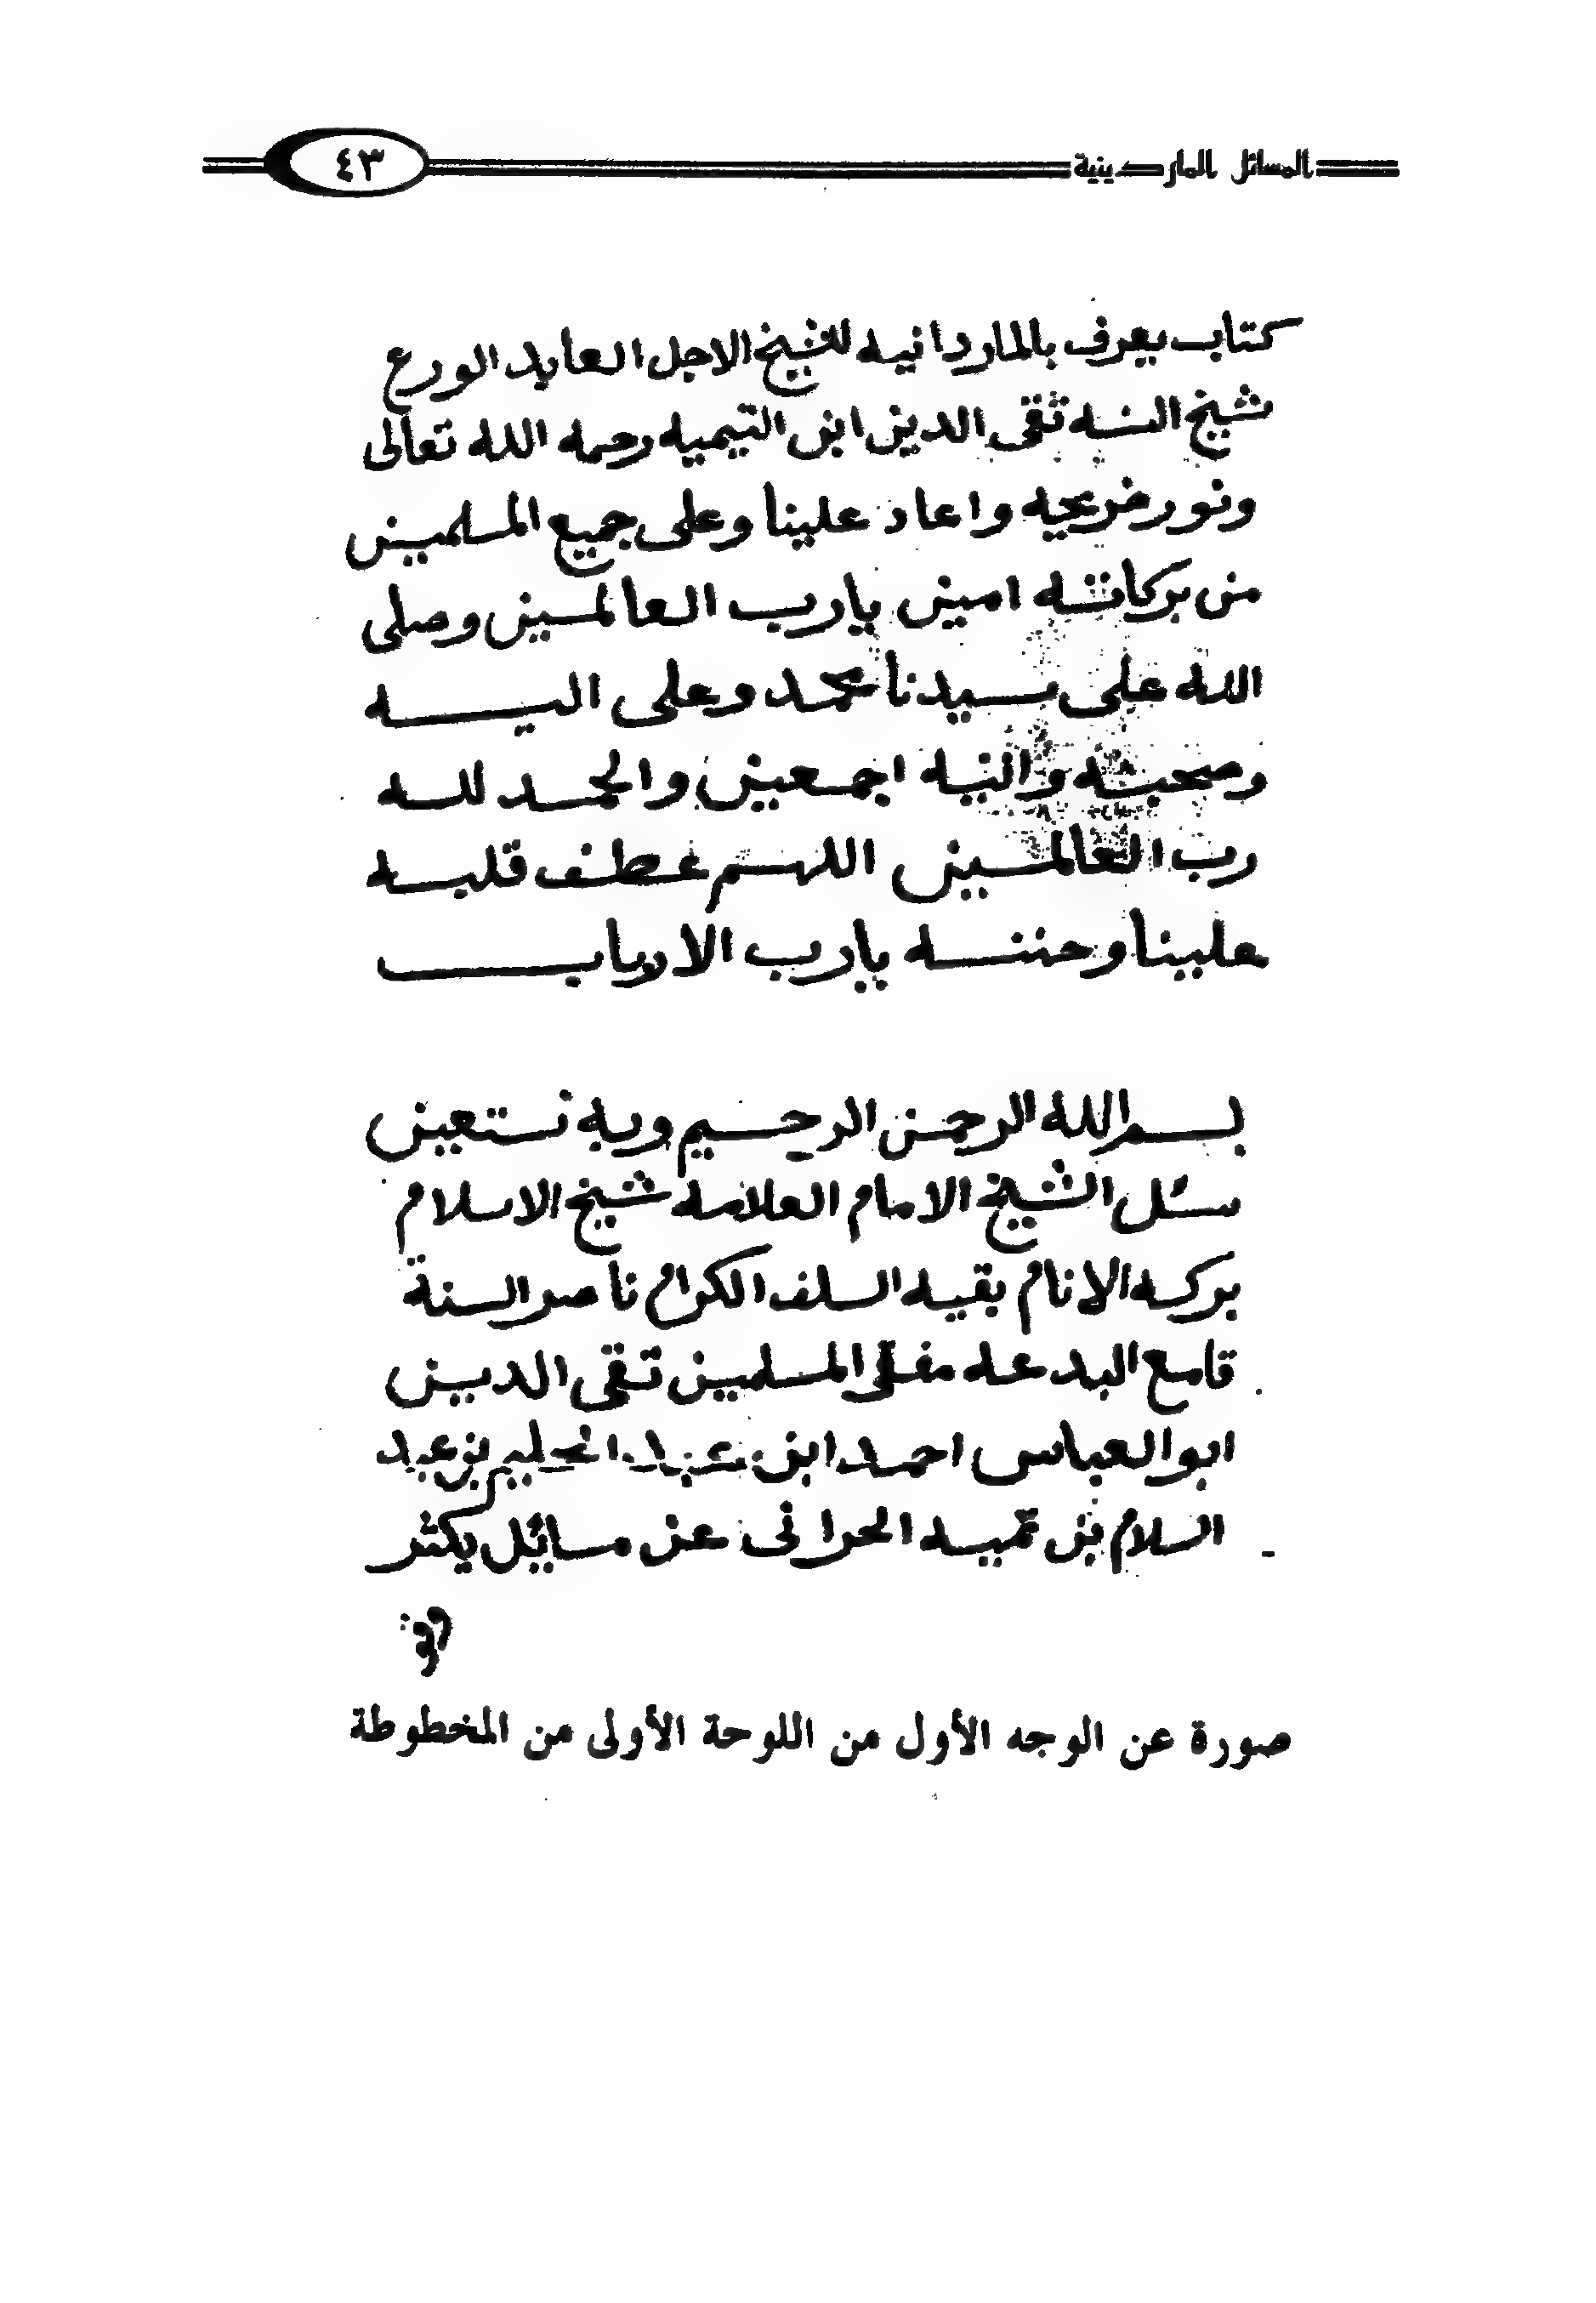 المسائل الماردينية ٤٣
كتاب يعرف بالماردانيه للشيخ الاجل العابد الورع
شيخ السنه تقى الدين ابن التيميه رحمه الله تعالى
ونور ضريحه واعاد علينا وعلى جميع المسلمين
من بركاته امين يارب العالمين وصلى
الله على سيدنا محمد وعلى اليه
وصحبه واليه اجمعين والحمد لله
رب العالمين اللهم عطف قلبه
علينا وحننه يارب الارباب
بسم الله الرحمن الرحيم وبه نستعين
سئل الشيخ الامام العلامه شيخ الاسلام
بركه الانام بقيه السلف الكرام ناصر السنة
قامع البدعه مفتى المسلمين تقى الدين
ابو العباس احمد ابن عبد الحليم بن عبد
السلام بن تميه الحرانى عن مسائل يكثر
صورة عن الوجه الأول من اللوحة الأولى من المخطوطة